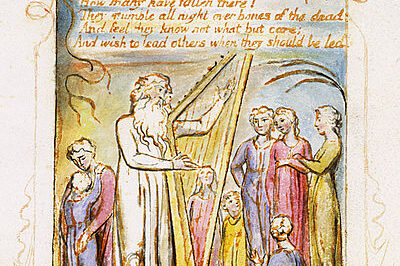 How many have fallen there!
They stumble all night over bones of the dead;
And feel they know not what but care;
And wish to lead others when they should be led